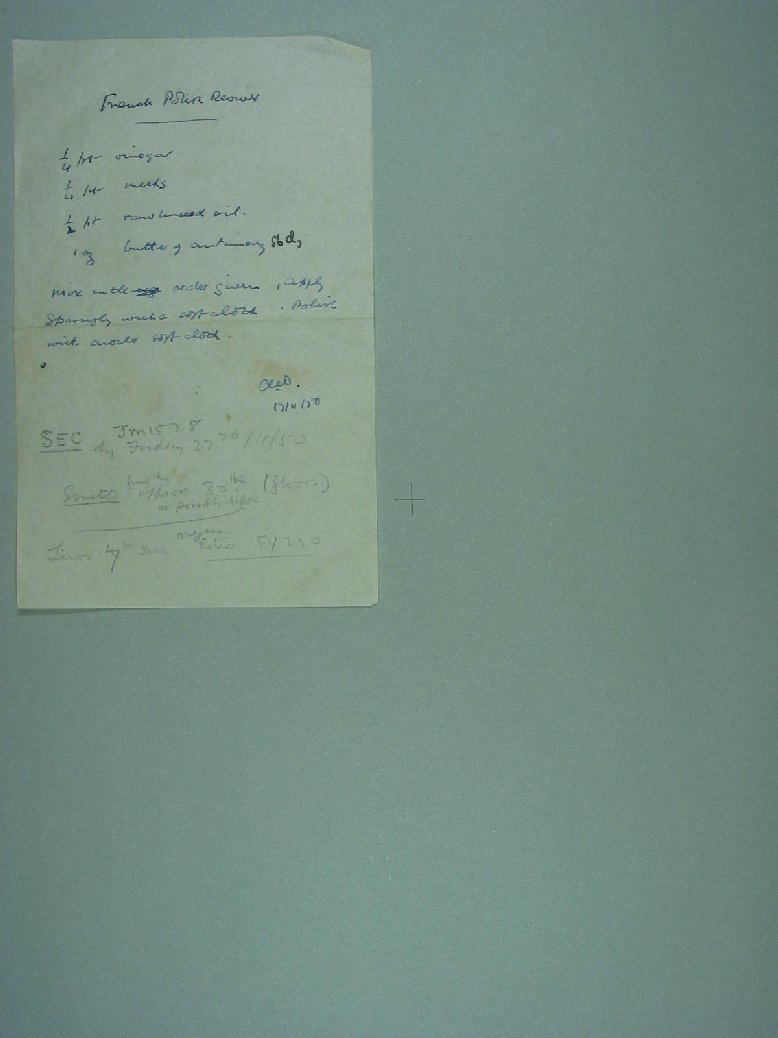 French Polish Reviver
1/4 pt vinegar
1/4 pt meths
1/2 pt raw linseed oil.
1 oz butter of antimony SbCl3
Mix in the order given, apply
Sparingly with a soft cloth. Polish
with another soft cloth.
SEC JM1525
by Friday
approx 30 (floors)
or possibly before
Dec FY 220